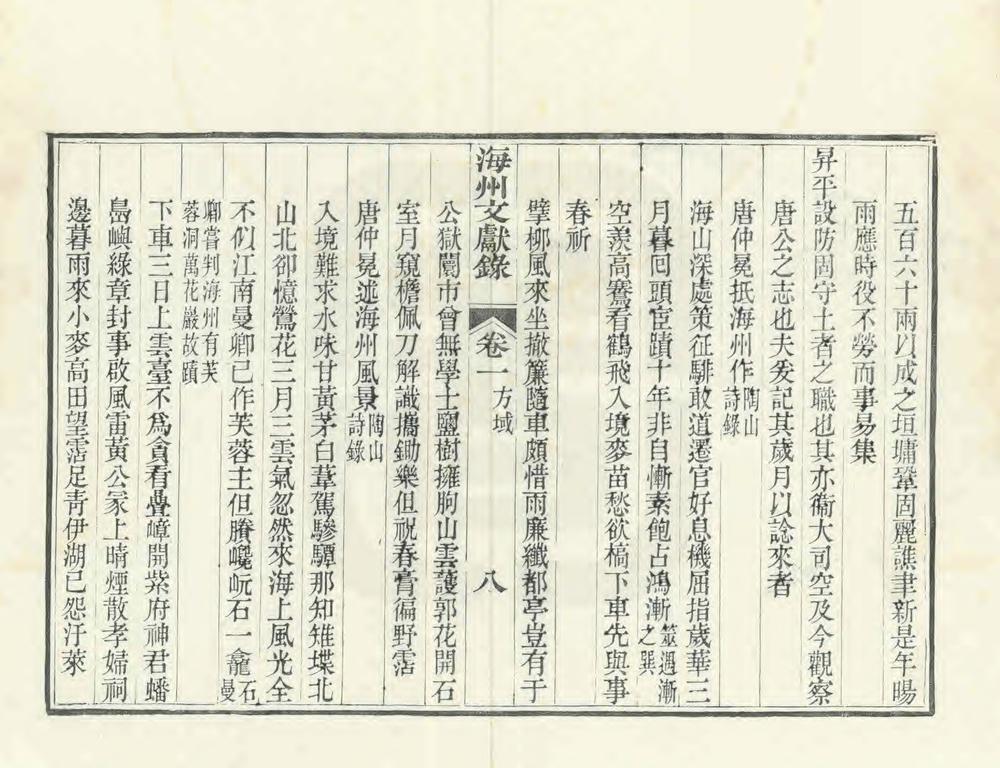 五百六十兩以成之垣墉鞏固麗譙聿新是年暘
雨應時役不勞而事易集
昇平設防固守土者之職也其亦衞大司空及今觀察
唐公之志也夫爰記其歲月以諗來者
唐仲冕抵海州作陶山詩錄
海山深處策征騑敢道遷官好息機屈指歲華三
月暮回頭宦蹟十年非自慚素飽占鴻漸筮遇漸之巽
空羨高騫看鶴飛入境麥苗愁欲槁下車先與事
春祈
擘柳風來坐撤簾隨車頗惜雨廉纖都亭豈有于
海州文獻錄 卷一 方域 八
公獄闤市曾無學士鹽樹擁朐山雲護郭花開石
室月窺檐佩刀解識攜鋤樂但祝春膏徧野霑
唐仲冕述海州風景陶山詩錄
入境難求水味甘黃茅白葦駕驂驔那知雉堞北
山北卻憶鶯花三月三雲氣忽然來海上風光全
不似江南曼卿已作芙蓉主但賸巉岏石一龕石曼
卿嘗判海州有芙蓉洞萬花巖故蹟
下車三日上雲臺不爲貪看疊嶂開紫府神君蟠
島嶼綠章封事啟風雷黃公冢上晴煙散孝婦祠
邊暮雨來小麥高田望霑足靑伊湖已怨汙萊